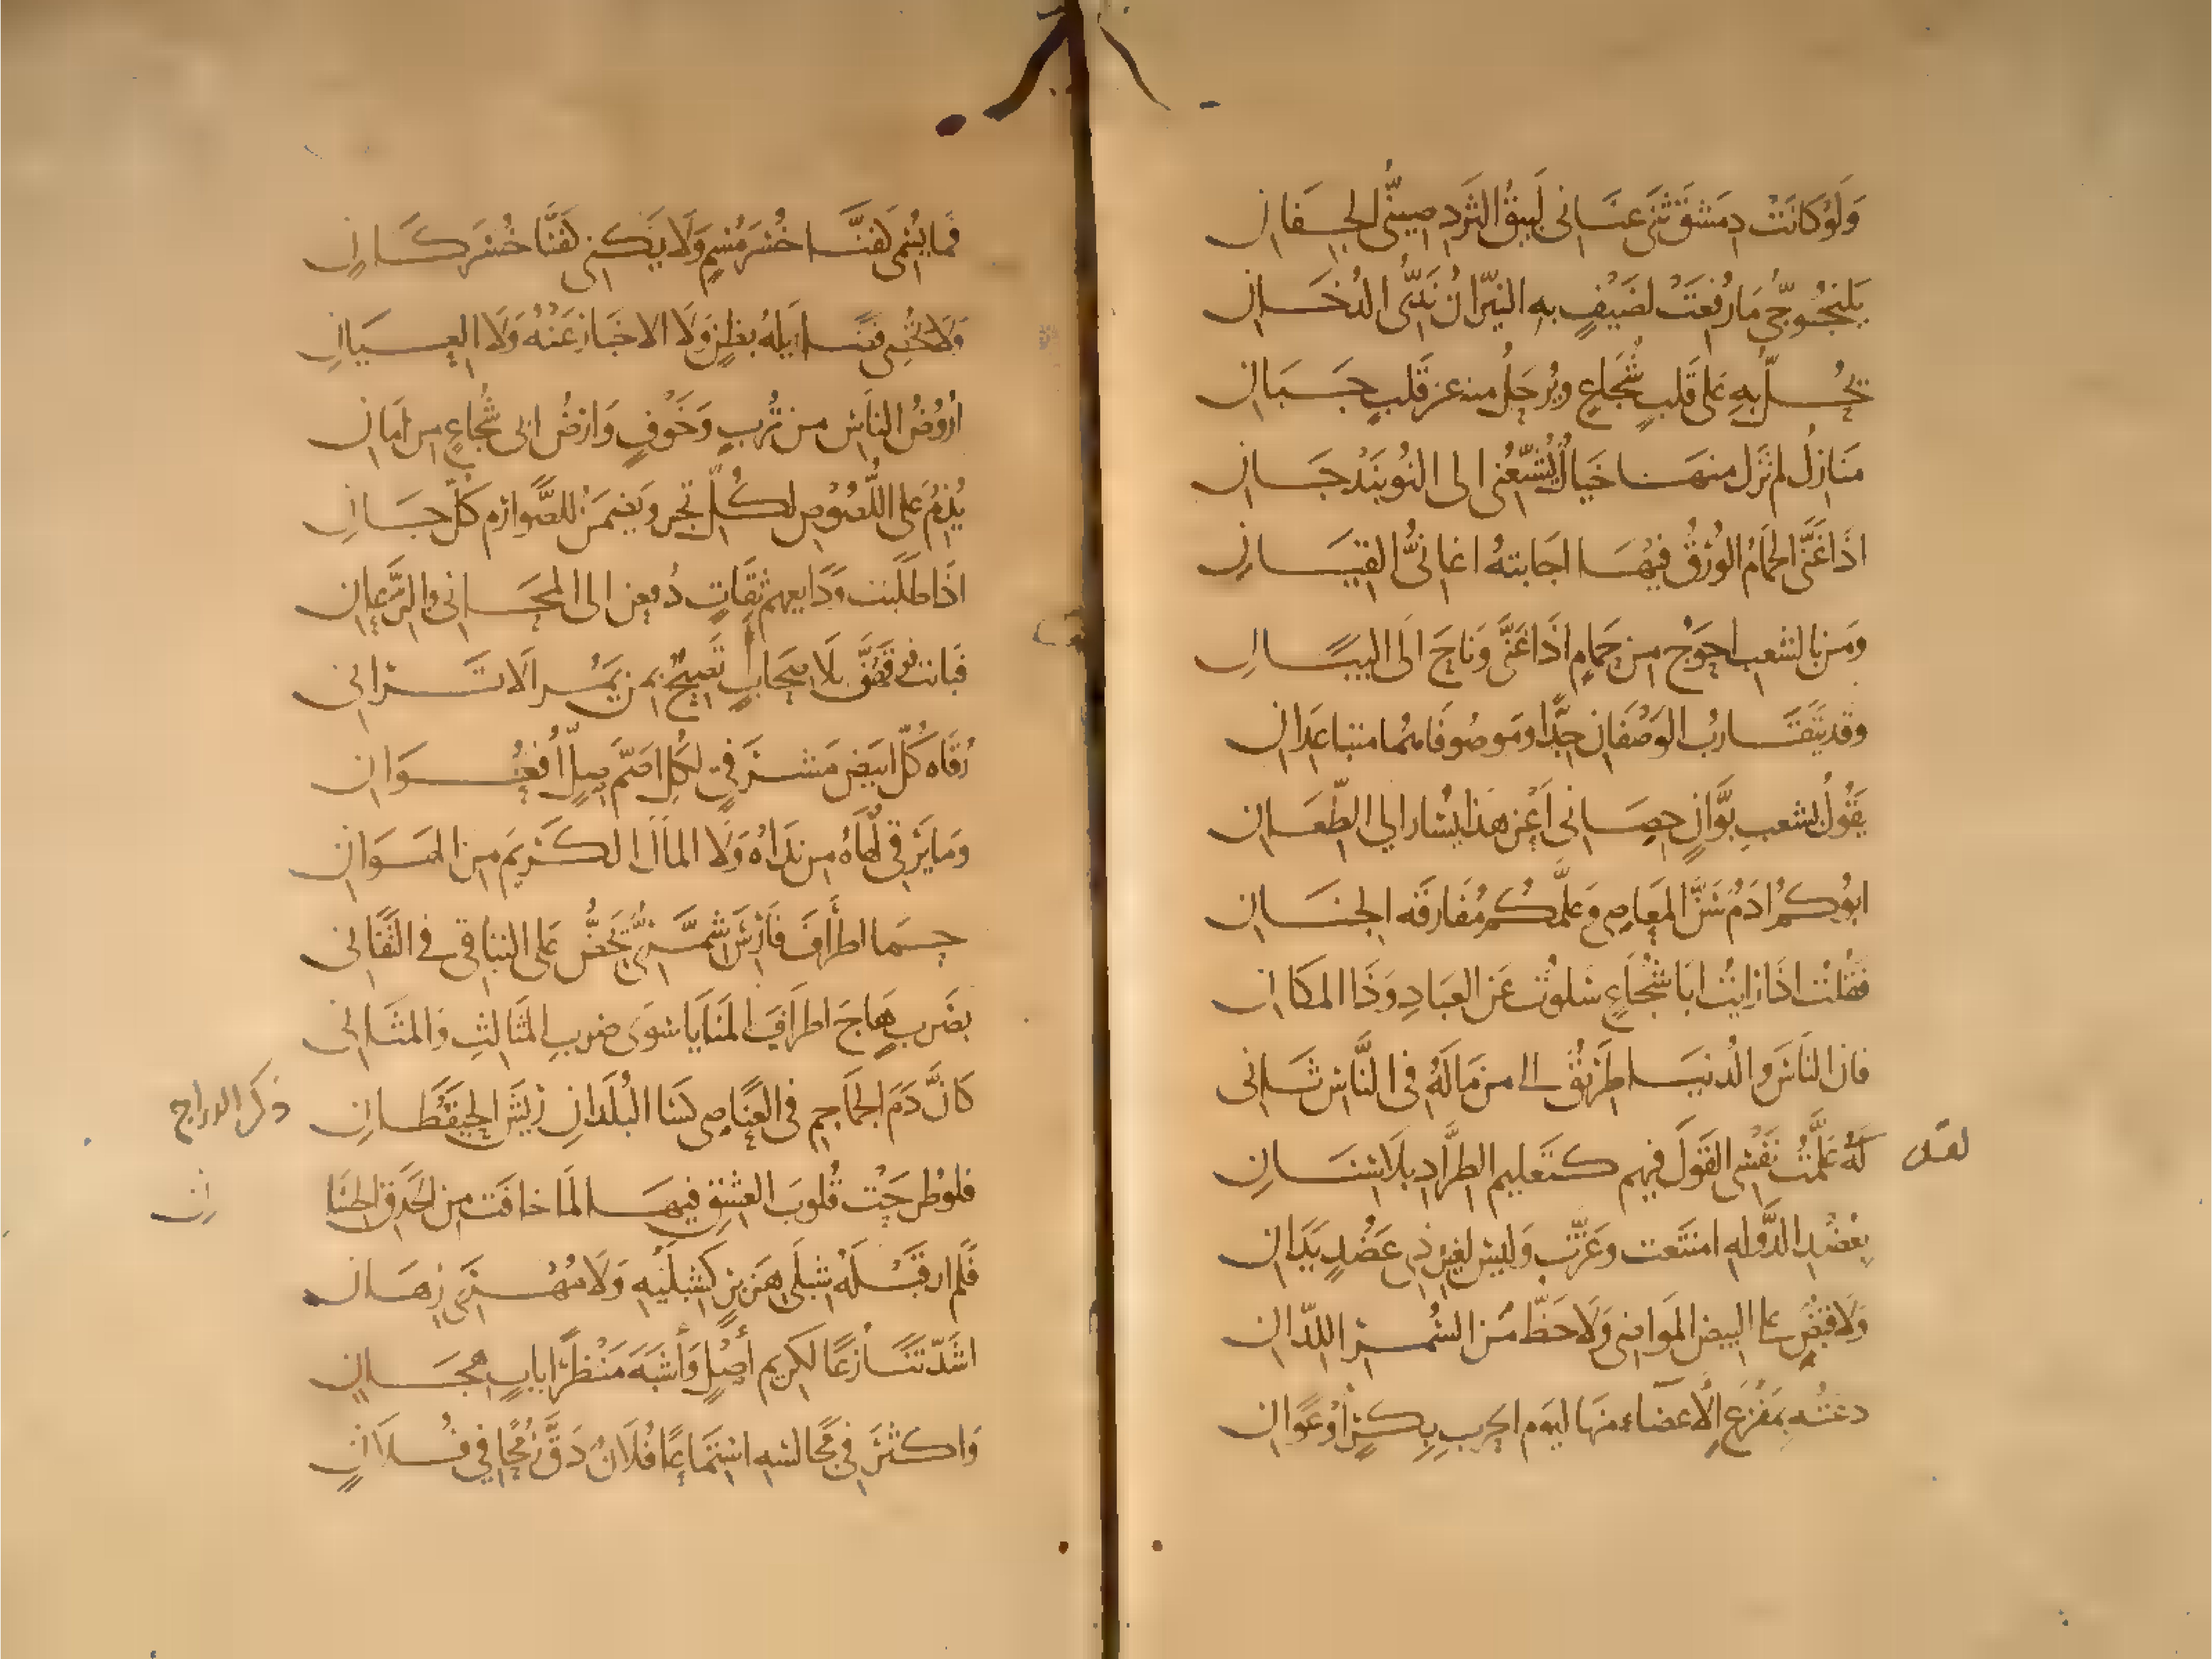 وَلَوْ كَانَتْ دِمَشقَ ثَنَى عنَانى لَبِيقُ الثَّردِ صِينيُّ الجِفَانِ
يَلنجُوجِيُّ مَا رُفِعَتْ لضَيْفٍ به النيرَانُ نَدِّىُّ الدُخَان
تحُلُّ بِهِ عَلى قَلبِ شُجَاعٍ ويُرحَلُ منه عن قَلبِ جَبَانِ
مَنَازِلُ لم تزَل منهَا خيَالٌ يُشيّعُنى الى النُوبَنْدجَانِ
اذَا غَنَّى الحَمَامُ الوُرْقُ فيهَا اجَابتهُ اغانىُّ القيَانِ
ومَن بالشعبِ احوَجُ من حمَامٍ اذَا غَنَّى وَنَاحَ الَى البيَانِ
وقد يتَقَارَبُ الوَصْفَانِ جِدًّا ومَوصُوفَاهُما متباعدَانِ
يَقُولُ بشعبِ بَوَّانٍ حِصَانى اَعَن هذا يُسَار الي الطّعَانِ
ابُوكمُ ادَمُ سَنَّ المَعَاصِى وَعلَّمكُم مُفَارقَه الجنَانِ
فقُلتُ اذَا رَايتُ ابَا شُجَاعٍ سَلوتُ عَن العبَادِ وَذَا المكَانِ
فان النَّاسَ والدنيَا طَريقٌ الى مَن مَا لَهُ فى النَّاسِ ثَانى
لَهُ عَلَّمتُ نَفْسى القَولَ فيهِم كَتَعليم الطرَّادِ بلَا سنَانِ
لقد
بعَضُدِ الدَّوله امتنَعت وعَزَّت وَليسَ لغيرِ ذى عَضُدٍ يَدَانِ
وَلَا قبضٌ على البيضِ المَواضى وَلَا حَظّ مِنَ السُمرِ اللّدَانِ
دعَتهُ بمَفزَعِ الاَعضَاء منهَا ليَوم الحربِ بِكرٍ اوْ عَوَانِ
فمَا يُسْمى كَفَنَّا خُسْرَ مُسمٍ وَلَا يَكنى كَفَنَّا خُسْرَ كَانِ
وَلَا تُحْصَى فضَايلهُ بظنٍّ وَلَا الاخبَارُ عَنْهُ وَلَا العيَانِ
أرُوضُ النَاسِ من تُربٍ وَخَوْفٍ وَارْضُ ابى شُجَاعٍ من امَانِ
يُذِمُّ عَلى اللُّصُوصِ لكُلِّ تجرٍ وَيَضمَنُ للصَّوارم كلَّ جَانِ
اذَا طَلَبَت وَدَايعهم ثِقَاتٍ دُفعن الى المحَانى والرّعَانِ
فبَاتت فَوقَهُنَّ بلَا صِحَابٍ تَصيحُ بمَن يَمُر اَلَا تَرَانى
رُقَاه كُلُّ ابيَضَ مَشرَفىٍّ لكُلِّ اصَمَّ صِلٍّ اُفعُوَانِ
وَمَا يَرقى لُهَاهُ من نَدَاهُ وَلَا المَالَ الكَريمَ من الهَوَانِ
حمَا اطرَافَ فَارسَ شمَّرىٌّ يَحُضُّ عَلى التبَاقى في التَّفَانى
بضَربٍ هَاجَ اطرَابَ المنَايَا سوَى ضربِ المثَالثِ وَالمثَانى
كَانَّ دَمَ الجَمَاجِمِ فى العنَاصِى كسَا البُلدَانَ ريشَ الحيقُطَانِ
ذكر الدراج
فلو طُرحَت قُلوبُ العشقِ فيهَا لَمَا خافَت مِن الحَدَقِ الحسَا
نِ
فَلم ارَ قَبْلهُ شبلَى هزبرٍ كَشبلَيْهِ وَلَا مُهْرَى رِهَانِ
اشَدّ تنَازعًا لكريم أصْلٍ وَأشبَهَ مَنْظَرًا بابٍ هجَانِ
وَاكثَرَ فى مجَالسه استمَاعًا فُلَانٌ دَقَّ رُمحًا في فُلَانٍ